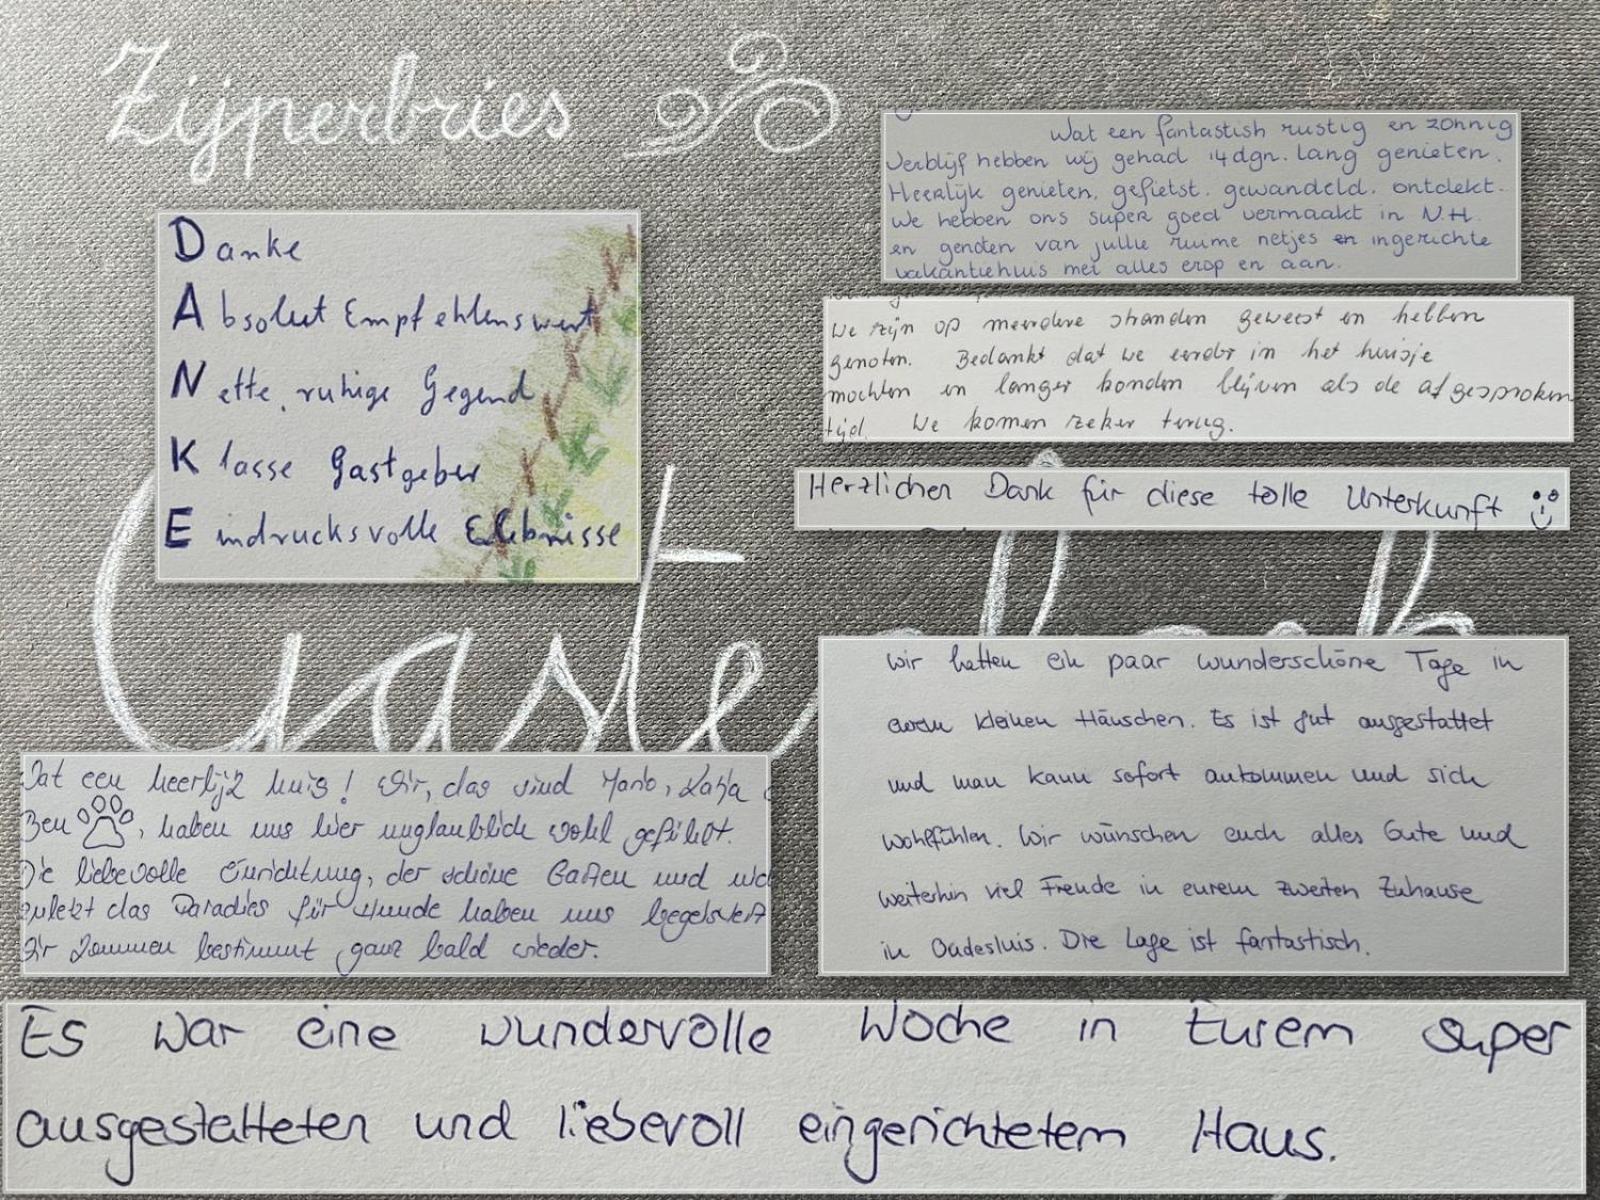 Zijperbries
Danke
Absolut Empfehlenswert
Nette, ruhige Gegend
Klasse Gastgeber
Eindrucksvolle Erlebnisse
Wat een fantastish rustig en zonnig
verblijf hebben wij gehad 14 dgn. lang genieten.
Heerlijk genieten, gefietst. gewandeld. ontdekt.
We hebben ons super goed vermaakt in N.H.
en genoten van jullie ruime netjes en ingerichte
vakantiehuis met alles erop en aan.
We zijn op meerdere stranden geweest en hebben
genoten. Bedankt dat we eerder in het huisje
mochten en langer konden blijven als de afgesproken
tijd. We komen zeker terug.
Herzlichen Dank für diese tolle Unterkunft
Gaste
Wir hatten ein paar wunderschöne Tage in
eurem kleinen Häuschen. Es ist gut ausgestattet
und man kann sofort ankommen und sich
wohlfühlen. Wir wünschen euch alles Gute und
weiterhin viel Freude in eurem zweiten Zuhause
in Oudesluis. Die Lage ist fantastisch.
Wat een heerlijk huis! Wir, das sind Mario, Katja
Ben, haben uns hier unglaublich wohl gefühlt.
Die liebevolle Einrichtung, der schöne Garten und
zuletzt das Paradies für Hunde haben uns begeistert
Wir kommen bestimmt ganz bald wieder.
Es war eine wundervolle Woche in Eurem super
ausgestatteten und liebevoll eingerichtetem Haus.